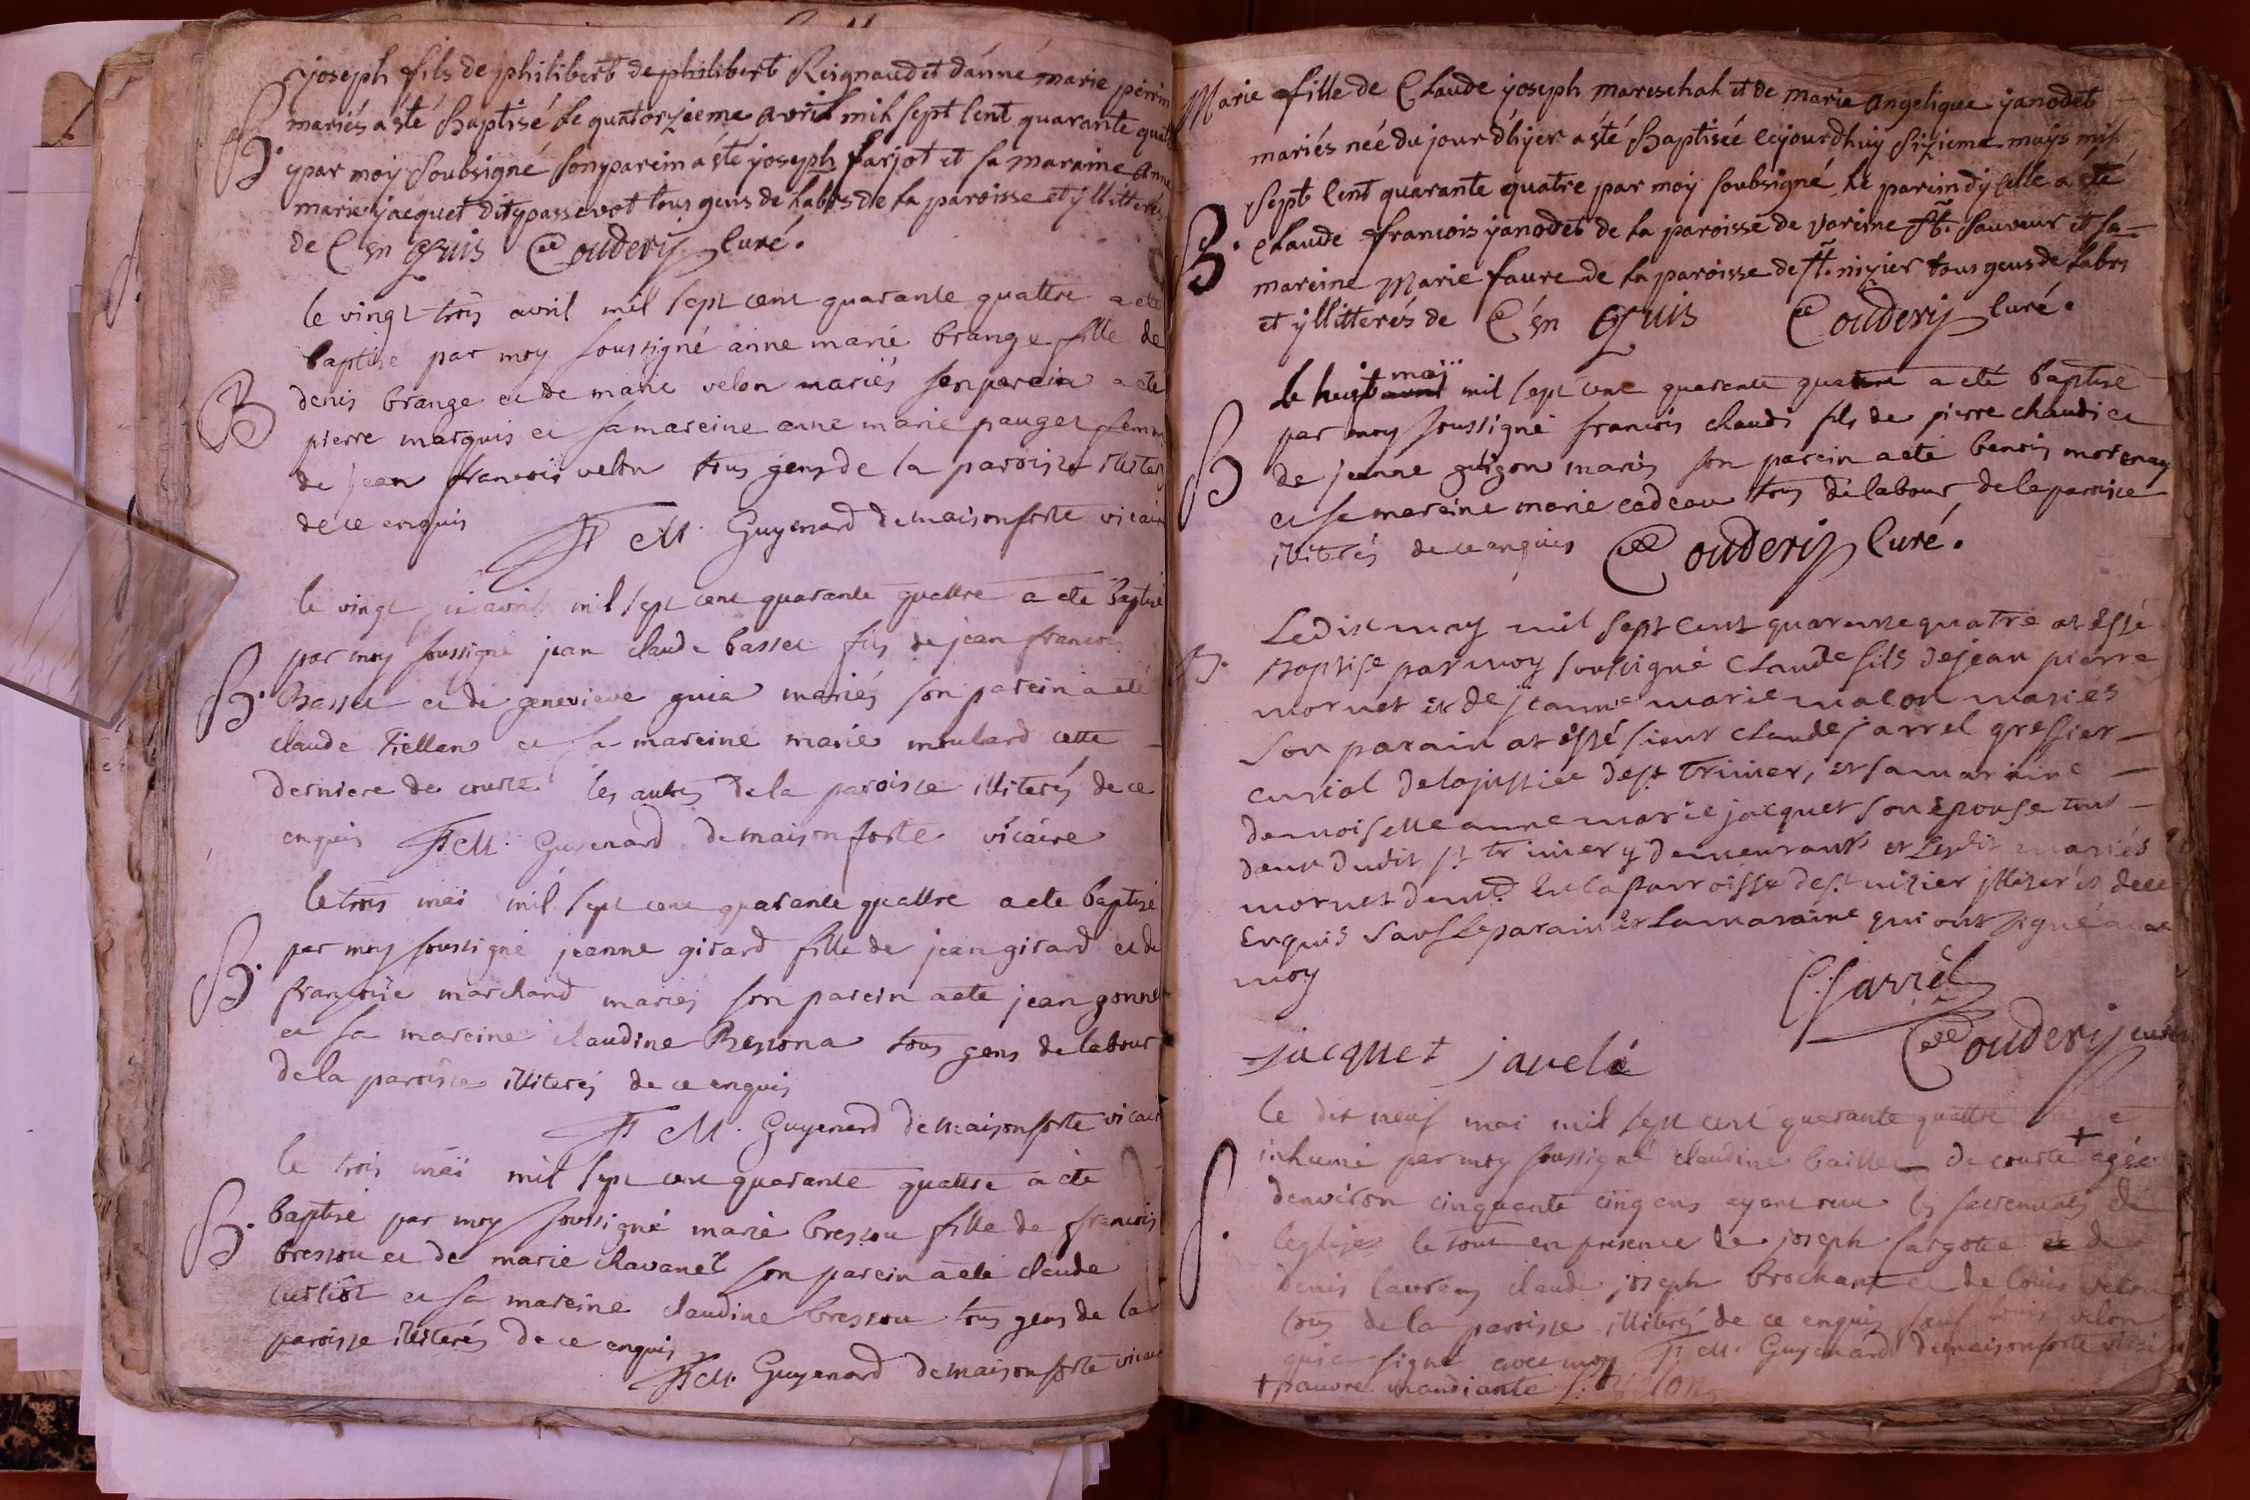 joseph fils de philibert de philibert Reignaud et danne marie perrin
mariés a été Baptisé le quatorzieme avril mil sept Cent quarante quat
B. par moy soubsigné son parein a été joseph farjot et sa maraine anne
marie jacquet dit passevot tous gens de labrs de la paroisse et yllitterés
de C'en Quis Couderij Curé.
le vingt trois avril mil sept cent quarante quattre a eté
baptisé par moy soussigné anne marie brange fille de
B denis brange et de marie velon mariés son parein a eté
pierre marquis et sa mareine anne marie pauget femme
de jean francois velon tous gens de la paroisse illiterés
de ce enquis F M. Guyenard demaisonforte vicair
le vingt avril mil sept cent quarante quattre a ete Baptisé
par moy soussigné jean claude basset fils de jean francois
B. Basset et de genevieve guia mariés son parein a eté
claude tiellen et sa mareine marie moulard cette
derniere de courte les autres de la paroisse illiterés de ce
enquis F M. Guyenard demaisonforte vicaire
le trois mai mil sept cent quarante quattre a ete baptisé
par moy soussigné jeanne girard fille de jean girard et de
B. françoise marchand mariés son parein a ete jean gonnet
et sa mareine claudine Ressona tous gens de labour
de la paroisse illiterés de ce enquis
F M. Guyenard demaisonforte vicair
le trois mai mil sept cent quarante quattre a ete
B. baptisé par moy soussigné marie bressou fille de francois
bressou et de marie chavanel son parein a eté claude
curtiot et sa mareine claudine bressou tous gens de la
paroisse illiterés de ce enquis
F M. Guyenard demaisonforte vicair
Marie fille de Claude joseph mareschal et de marie angelique janodet
mariés née du jour d'hyer a été Baptisée cejourdhuy sizieme mays mil
sept Cent quarante quatre par moy soubsigné, le parein dycelle a eté
B. claude francois janodet de la paroisse de varenne st. sauveur et sa
mareine Marie faure de la paroisse de st. nizier tous gens de labrs
et yllitterés de C'en Quis Couderij Curé.
le huit avril maï mil sept cent quarente quattre a eté baptisé
par moy soussigné francois chaudi fils de pierre chaudi et
B de jeanne guigon mariés son parein a eté benois morenay
et sa mareine marie cadeau tous de labour de la paroisse
illiterés de ce enquis Couderij Curé.
Le dix may mil sept cent quarante quatre at esté
B. Baptise par moy soussigné Claude fils de jean pierre
mornet et de jeanne marie malon mariés
son parain at esté sieur Claude jarrel greffier
curial de la justice de st trivier, et sa maraine
demoiselle anne marie jacquet son epouse tous
deux dudit st trivier y demeurants et lesdit mariés
mornet demt. en la parroisse de st nizier illiterés de ce
Enquis sauf le parain et la maraine qui ont signé avec
moy
C. Jarrel
Couderij curé
jacquet javelé
le dix neuf mai mil sept cent quarante quattre a eté
inhumé par moy soussigné claudine baillet de courte + agée
S. denviron cinquante cinq ans ayant recu les sacrements de
leglise le tout en presence de joseph fargotte et de
denis laurens claude joseph brochant et de louis velon
tous de la paroisse illiterés de ce enquis sauf louis velon
qui a signé avec moy F M. Guyenard demaisonforte vicair
+ pauvre mandiante